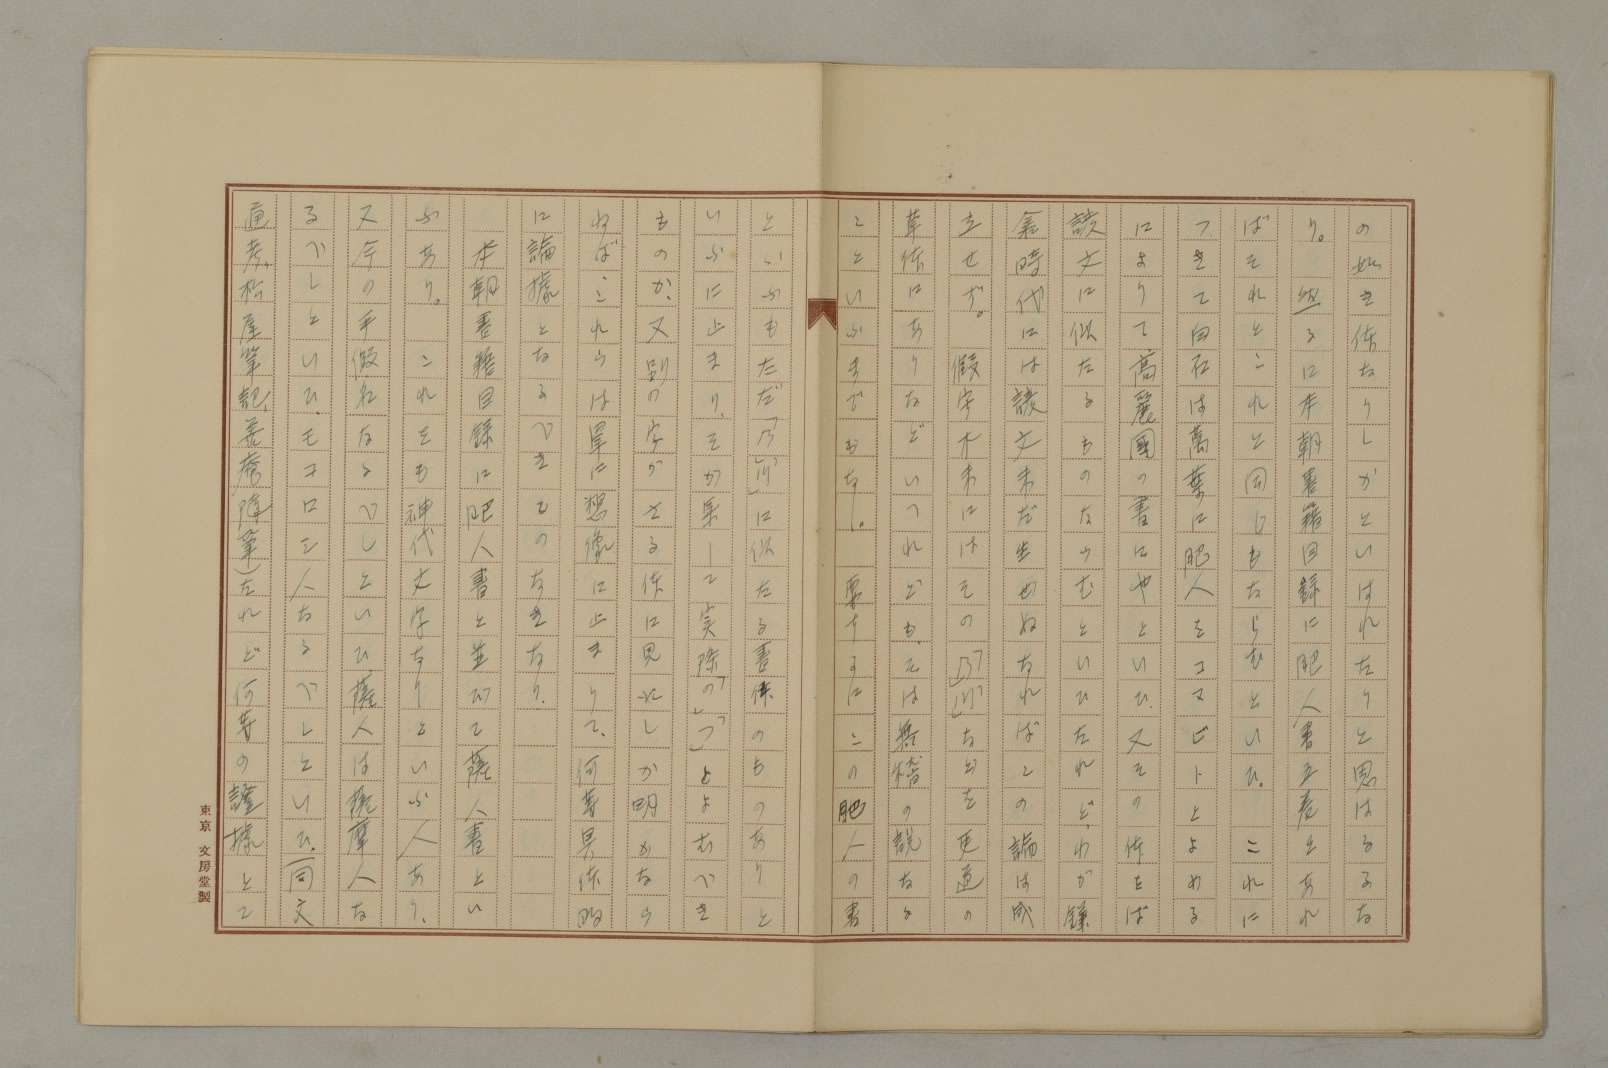 の如き体なりしかといはれたりと思はるるな
り。然るに本朝書籍目録に肥人書五巻とあれ
ばそれとこれと同じもならむといひ、これに
つきて白石は萬葉に肥人をコマビトとよめる
によりて高麗國の書にやといひ、又その体をば
諺文に似たるものならむといひたれど、わが鎌
倉時代には諺文未だ生せぬなればこの論は成
立せず。假字本末にはその「乃」「川」などを更道の
草体にありなどいへれども、そは無稽の説なる
こといふまでもなし。要するにこの肥人の書
といふもただ「乃」「川」に似たる書体のものありと
いふに止まり、そが果して実際の「の」「つ」とよむべき
ものか、又別の字がさる体に見えしか明かなら
ねばこれらは單に想像に止まりて、何等具体的
に論據となるべきものなきなり。
本朝書籍目録に肥人書と並びて薩人書とい
ふあり。これをも神代文字なりといふ人あり、
又今の平假名なるべしといひ、薩人は薩摩人な
るべしといひ、モコロシ人なるべしといひ、(同文
通考、松屋筆記、善庵随筆)たれど何等の證據とて
東京 文房堂製